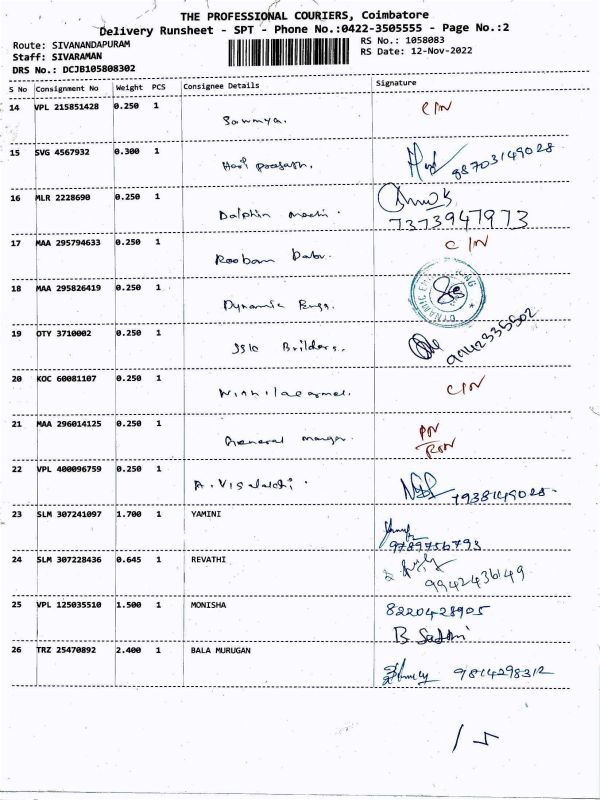 THE PROFESSIONAL COURIERS, Coimbatore
Delivery Runsheet - SPT - Phone No.:0422-3505555 - Page No.:2
Route: SIVANANDAPURAM RS No.: 1058083
Staff: SIVARAMAN RS Date: 12-Nov-2022
DRS No.: DCJB105808302
S No Consignment No Weight PCS Consignee Details Signature
14 VPL 215851428 0.250 1 Sowmya. C/N
15 SVG 4567932 0.300 1 Hari prasath. 98703149028
16 MLR 2228690 0.250 1 Dolphin
7373947973
17 MAA 295794633 0.250 1 C/N
18 MAA 295826419 0.250 1 Dynamic Engg. DYNAMIC
19 OTY 3710002 0.250 1 Builders. 9442335502
20 KOC 60081107 0.250 1 C/N
21 MAA 296014125 0.250 1 General
22 VPL 400096759 0.250 1 A. Visalakchi. 7938149028.
23 SLM 307241097 1.700 1 YAMINI
9789756793
24 SLM 307228436 0.645 1 REVATHI
9942436149
25 VPL 125035510 1.500 1 MONISHA 8220428905
26 TRZ 25470892 2.400 1 BALA MURUGAN
9814298312